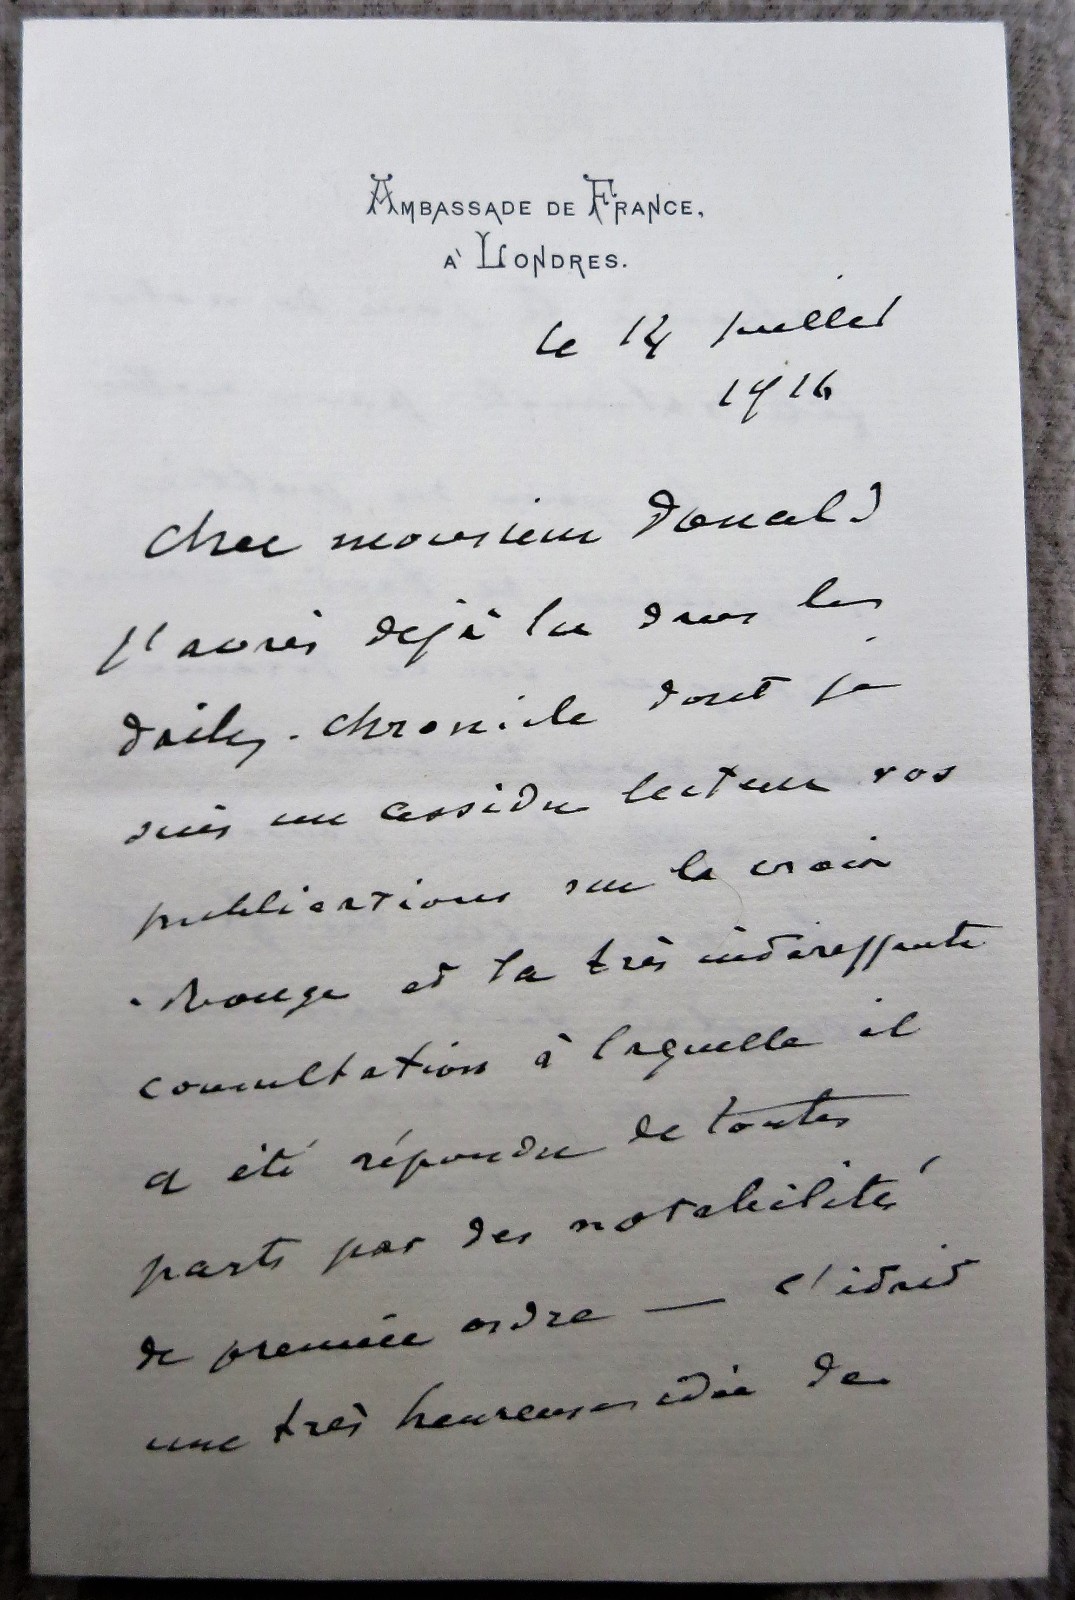 AMBASSADE DE FRANCE,
À LONDRES.
le 14 juillet
1916
Cher monsieur Donald
J'avais déjà lu dans les
Daily-Chronicle dont je
suis un assidu lecteur vos
publications sur la croix
-Rouge et la très intéressante
consultation à laquelle il
a été répondu de toutes
parts par des notabilités
de première ordre — C'était
une très heureuse idée de